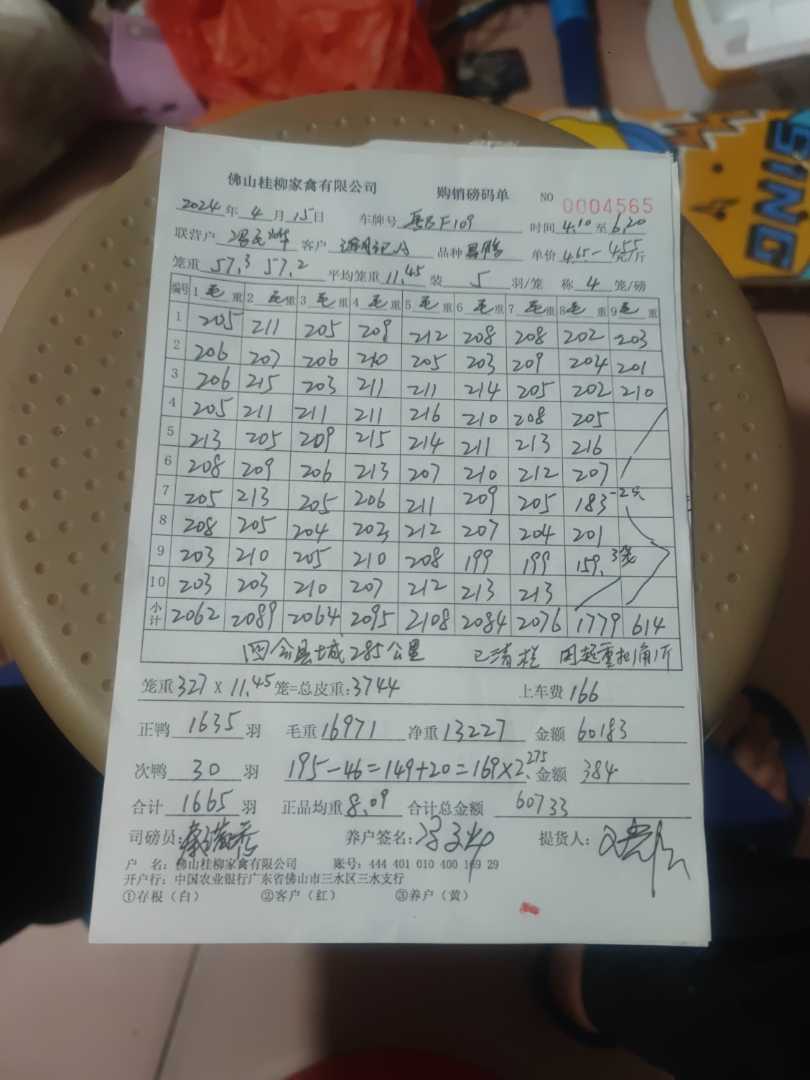 佛山桂柳家禽有限公司 购销磅码单 NO 0004565
2024年4月15日 车牌号 F109 时间 4.10至6.20
联营户 冯 客户 品种 单价 4.65-4.55元/斤
笼重 57.3 57.2 平均笼重 11.45 装 5 羽/笼 称 4 笼/磅
编号 1 毛重 2 毛重 3 毛重 4 毛重 5 毛重 6 毛重 7 毛重 8 毛重 9 毛重
1 205 211 205 209 212 208 208 202 203
2 206 207 206 210 205 203 209 204 201
3 206 215 203 211 211 214 205 202 210
4 205 211 211 211 216 210 208 205
5 213 205 209 215 214 211 213 216
6 208 209 206 213 207 210 212 207
7 205 213 205 206 211 209 205 183-2只
8 208 205 204 203 212 207 204 201
9 203 210 205 210 208 199 199 159 3笼
10 203 203 210 207 212 213 213
小计 2062 2089 2064 2095 2108 2084 2076 1779 614
四会县城285公里 已清栏
笼重 327 X 11.45 笼=总皮重:3744 上车费 166
正鸭 1635 羽 毛重 16971 净重 13227 金额 60183
次鸭 30 羽 195-46=149+20=169X2.275 金额 384
合计 1665 羽 正品均重 8.09 合计总金额 60733
司磅员: 养户签名: 冯 提货人:
户 名:佛山桂柳家禽有限公司 账号:444 401 010 400 169 29
开户行:中国农业银行广东省佛山市三水区三水支行
①存根(白) ②客户(红) ③养户(黄)
SING